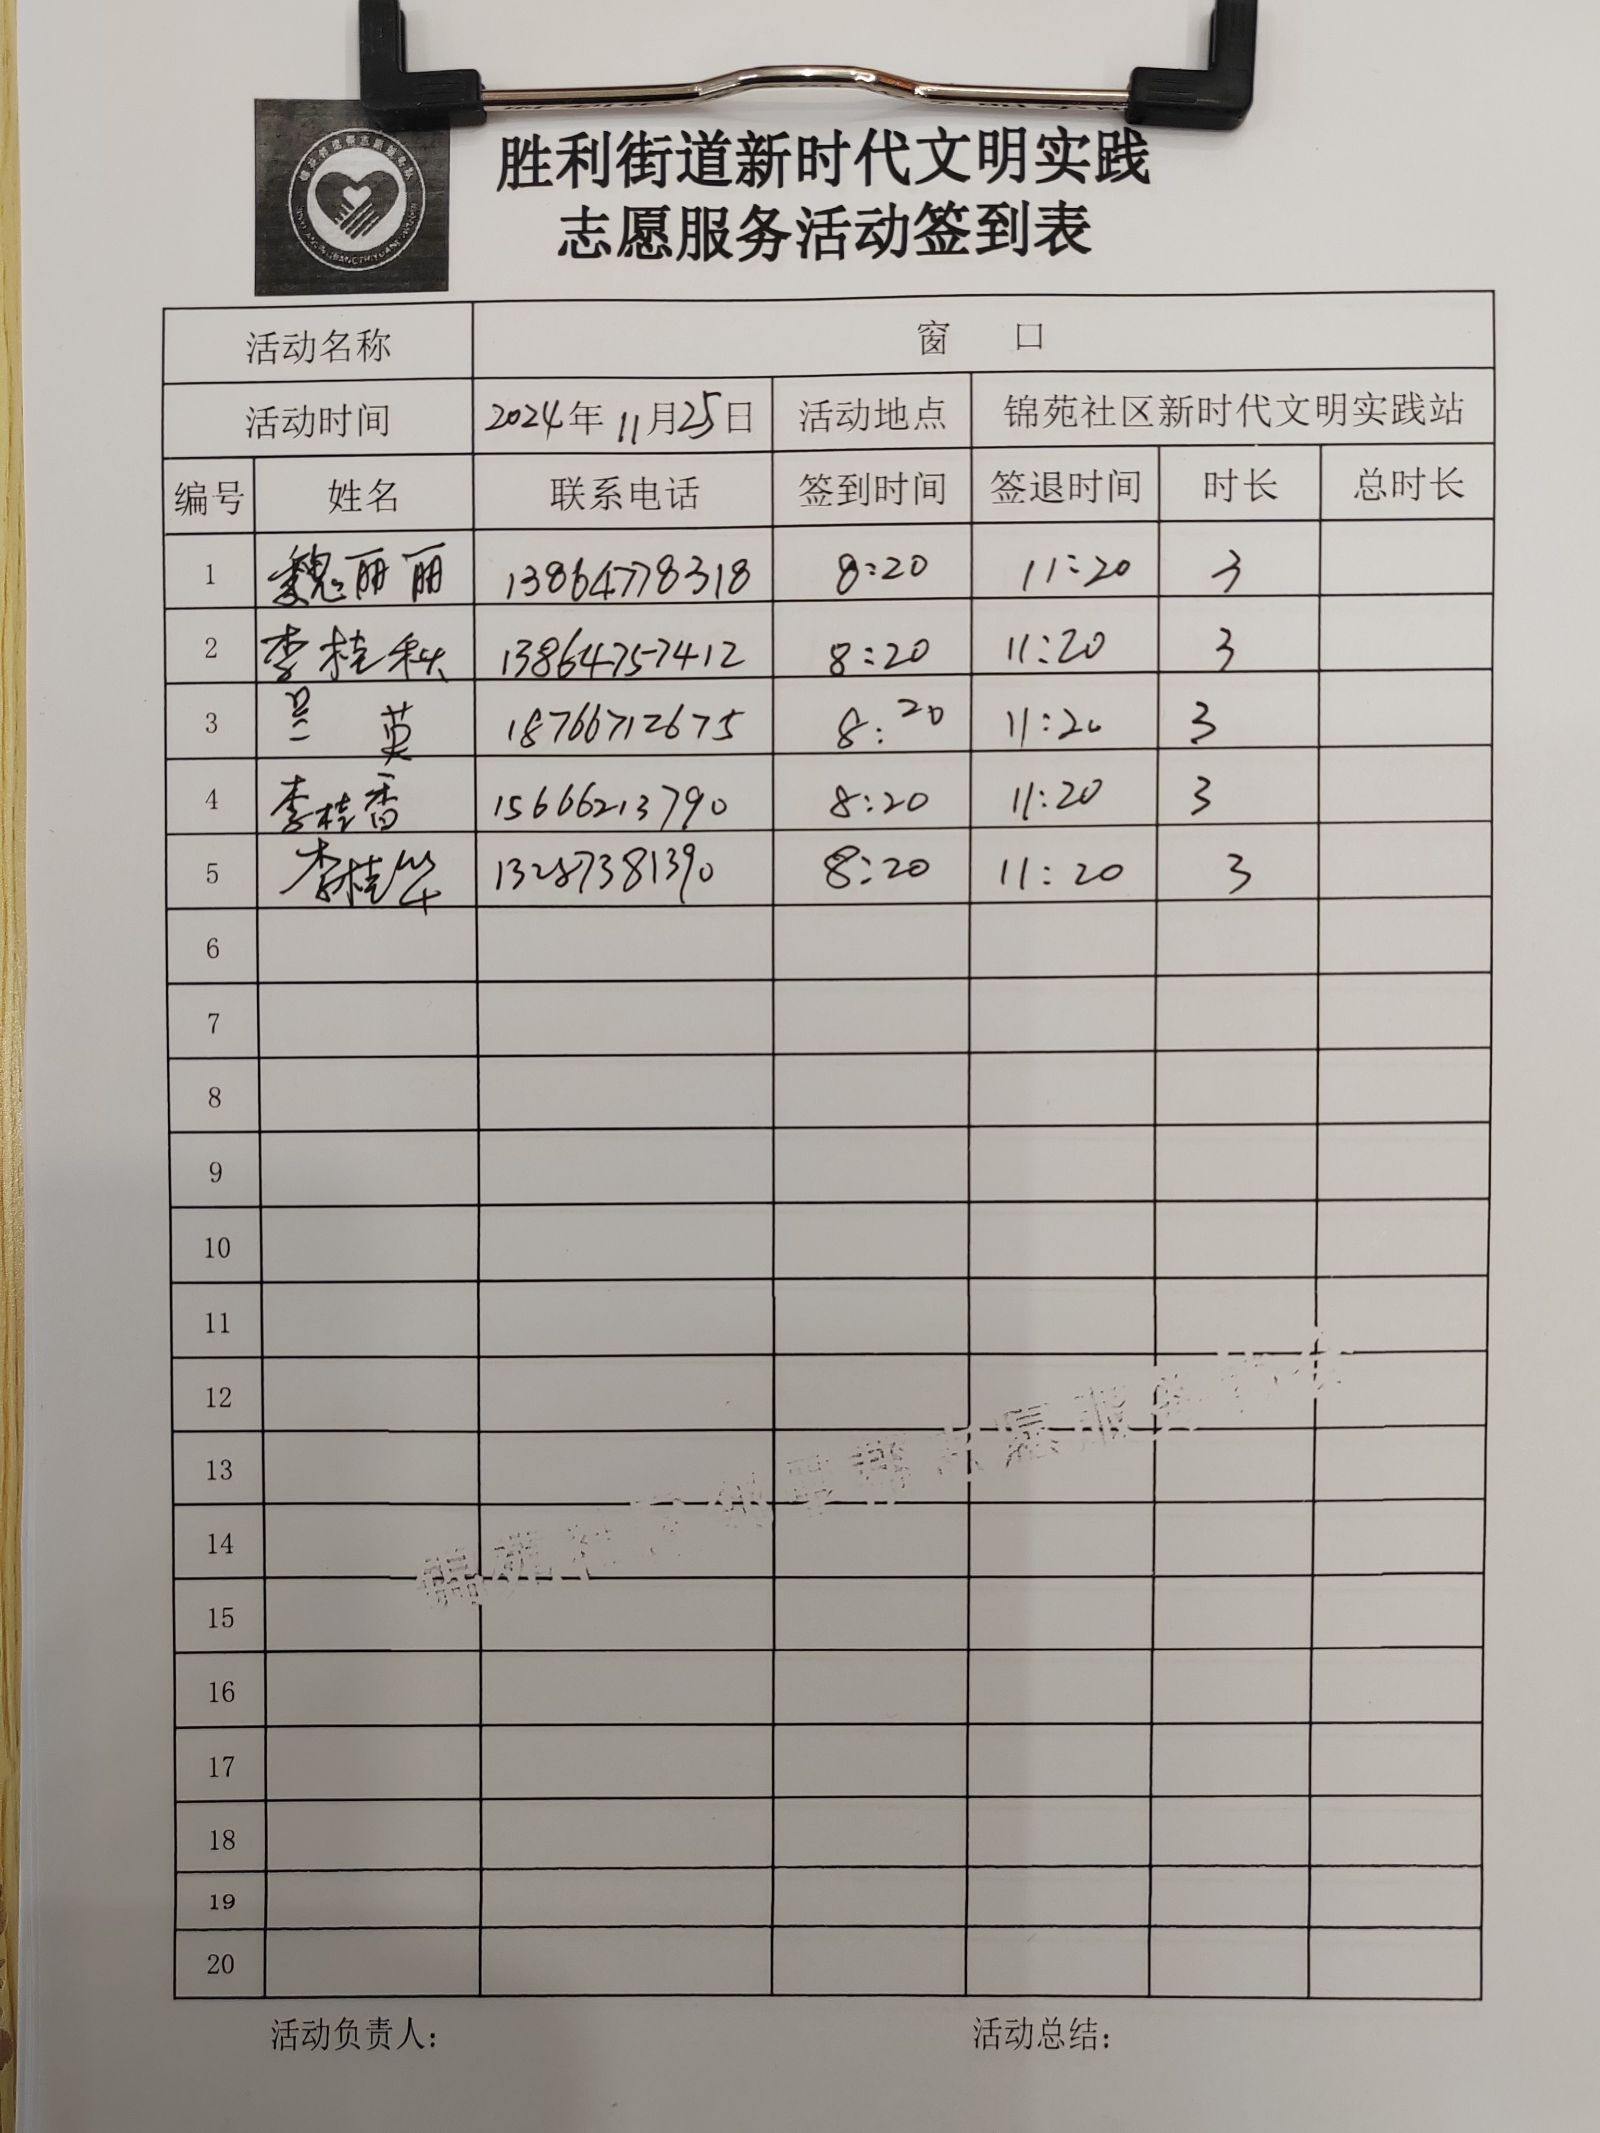 胜利街道新时代文明实践
志愿服务活动签到表
活动名称 窗 口
活动时间 2024年11月25日 活动地点 锦苑社区新时代文明实践站
编号 姓名 联系电话 签到时间 签退时间 时长 总时长
1 魏丽丽 13864778318 8:20 11:20 3
2 李桂秋 13864757412 8:20 11:20 3
3 英 18766712675 8:20 11:20 3
4 李桂香 15666213790 8:20 11:20 3
5 李桂华 13287381390 8:20 11:20 3
6
7
8
9
10
11
12
13
14
15
16
17
18
19
20
锦苑社区邻里帮志愿服务
活动负责人：
活动总结：